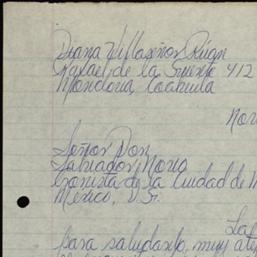 Diana Villaseñor Rúan
Rafael de la Fuente 412
Monclova, Coahuila
Nov
Señor Don
Salvador Novo
Cronista de la Ciudad de M
México, D.F.
La
para saludarlo, muy ate